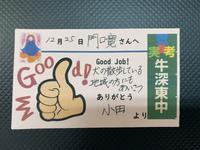 12月25日 門口寛さんへ
Good!
Good Job!
犬の散歩している
地域の方にも
あいさつ
ありがとう
小田 より
考
牛深東中